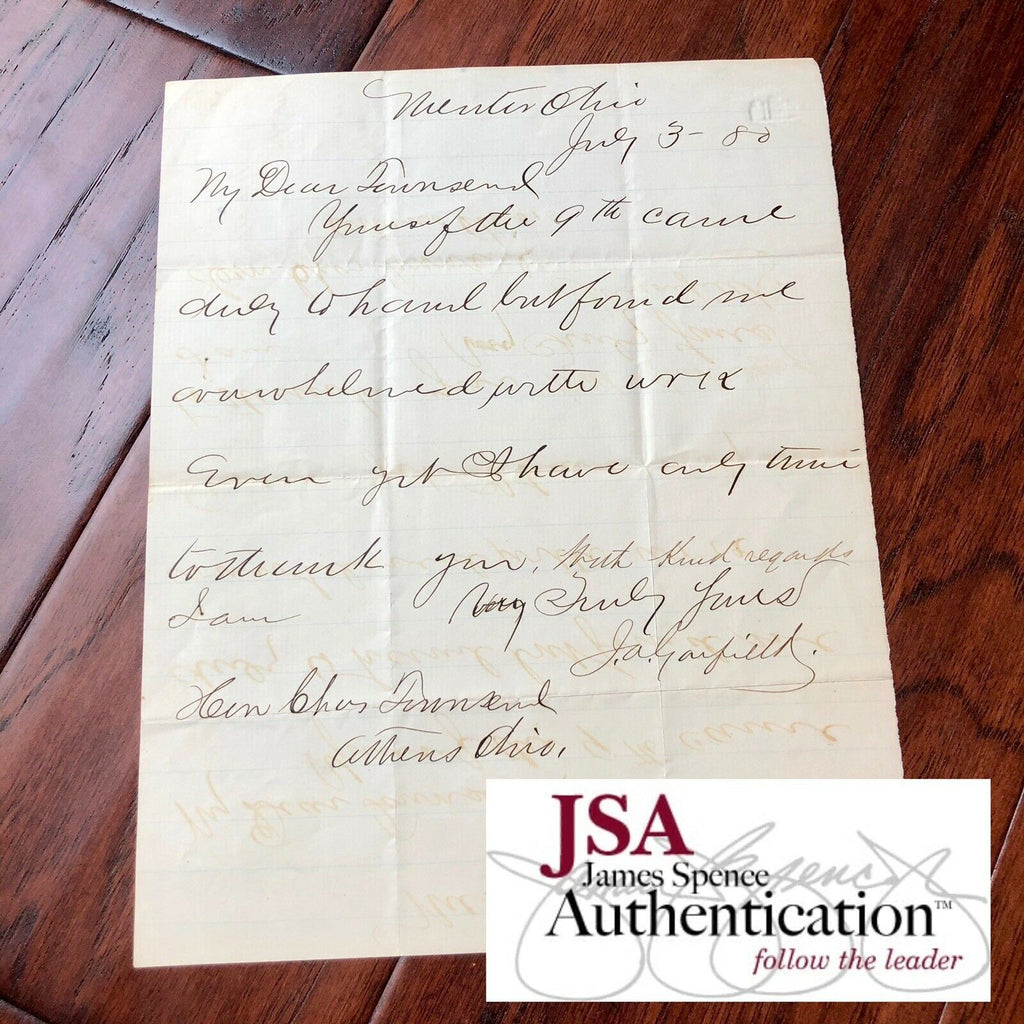 Mentor Ohio
July 3 - 80
My Dear Townsend
Yours of the 9th came
duly to hand but found me
overwhelmed with work
Even yet I have only time
to thank you, With Kind regards
I am Very Truly Yours
J.A. Garfield.
Hon Chas Townsend
Athens Ohio.
JSA
James Spence
Authentication™
follow the leader